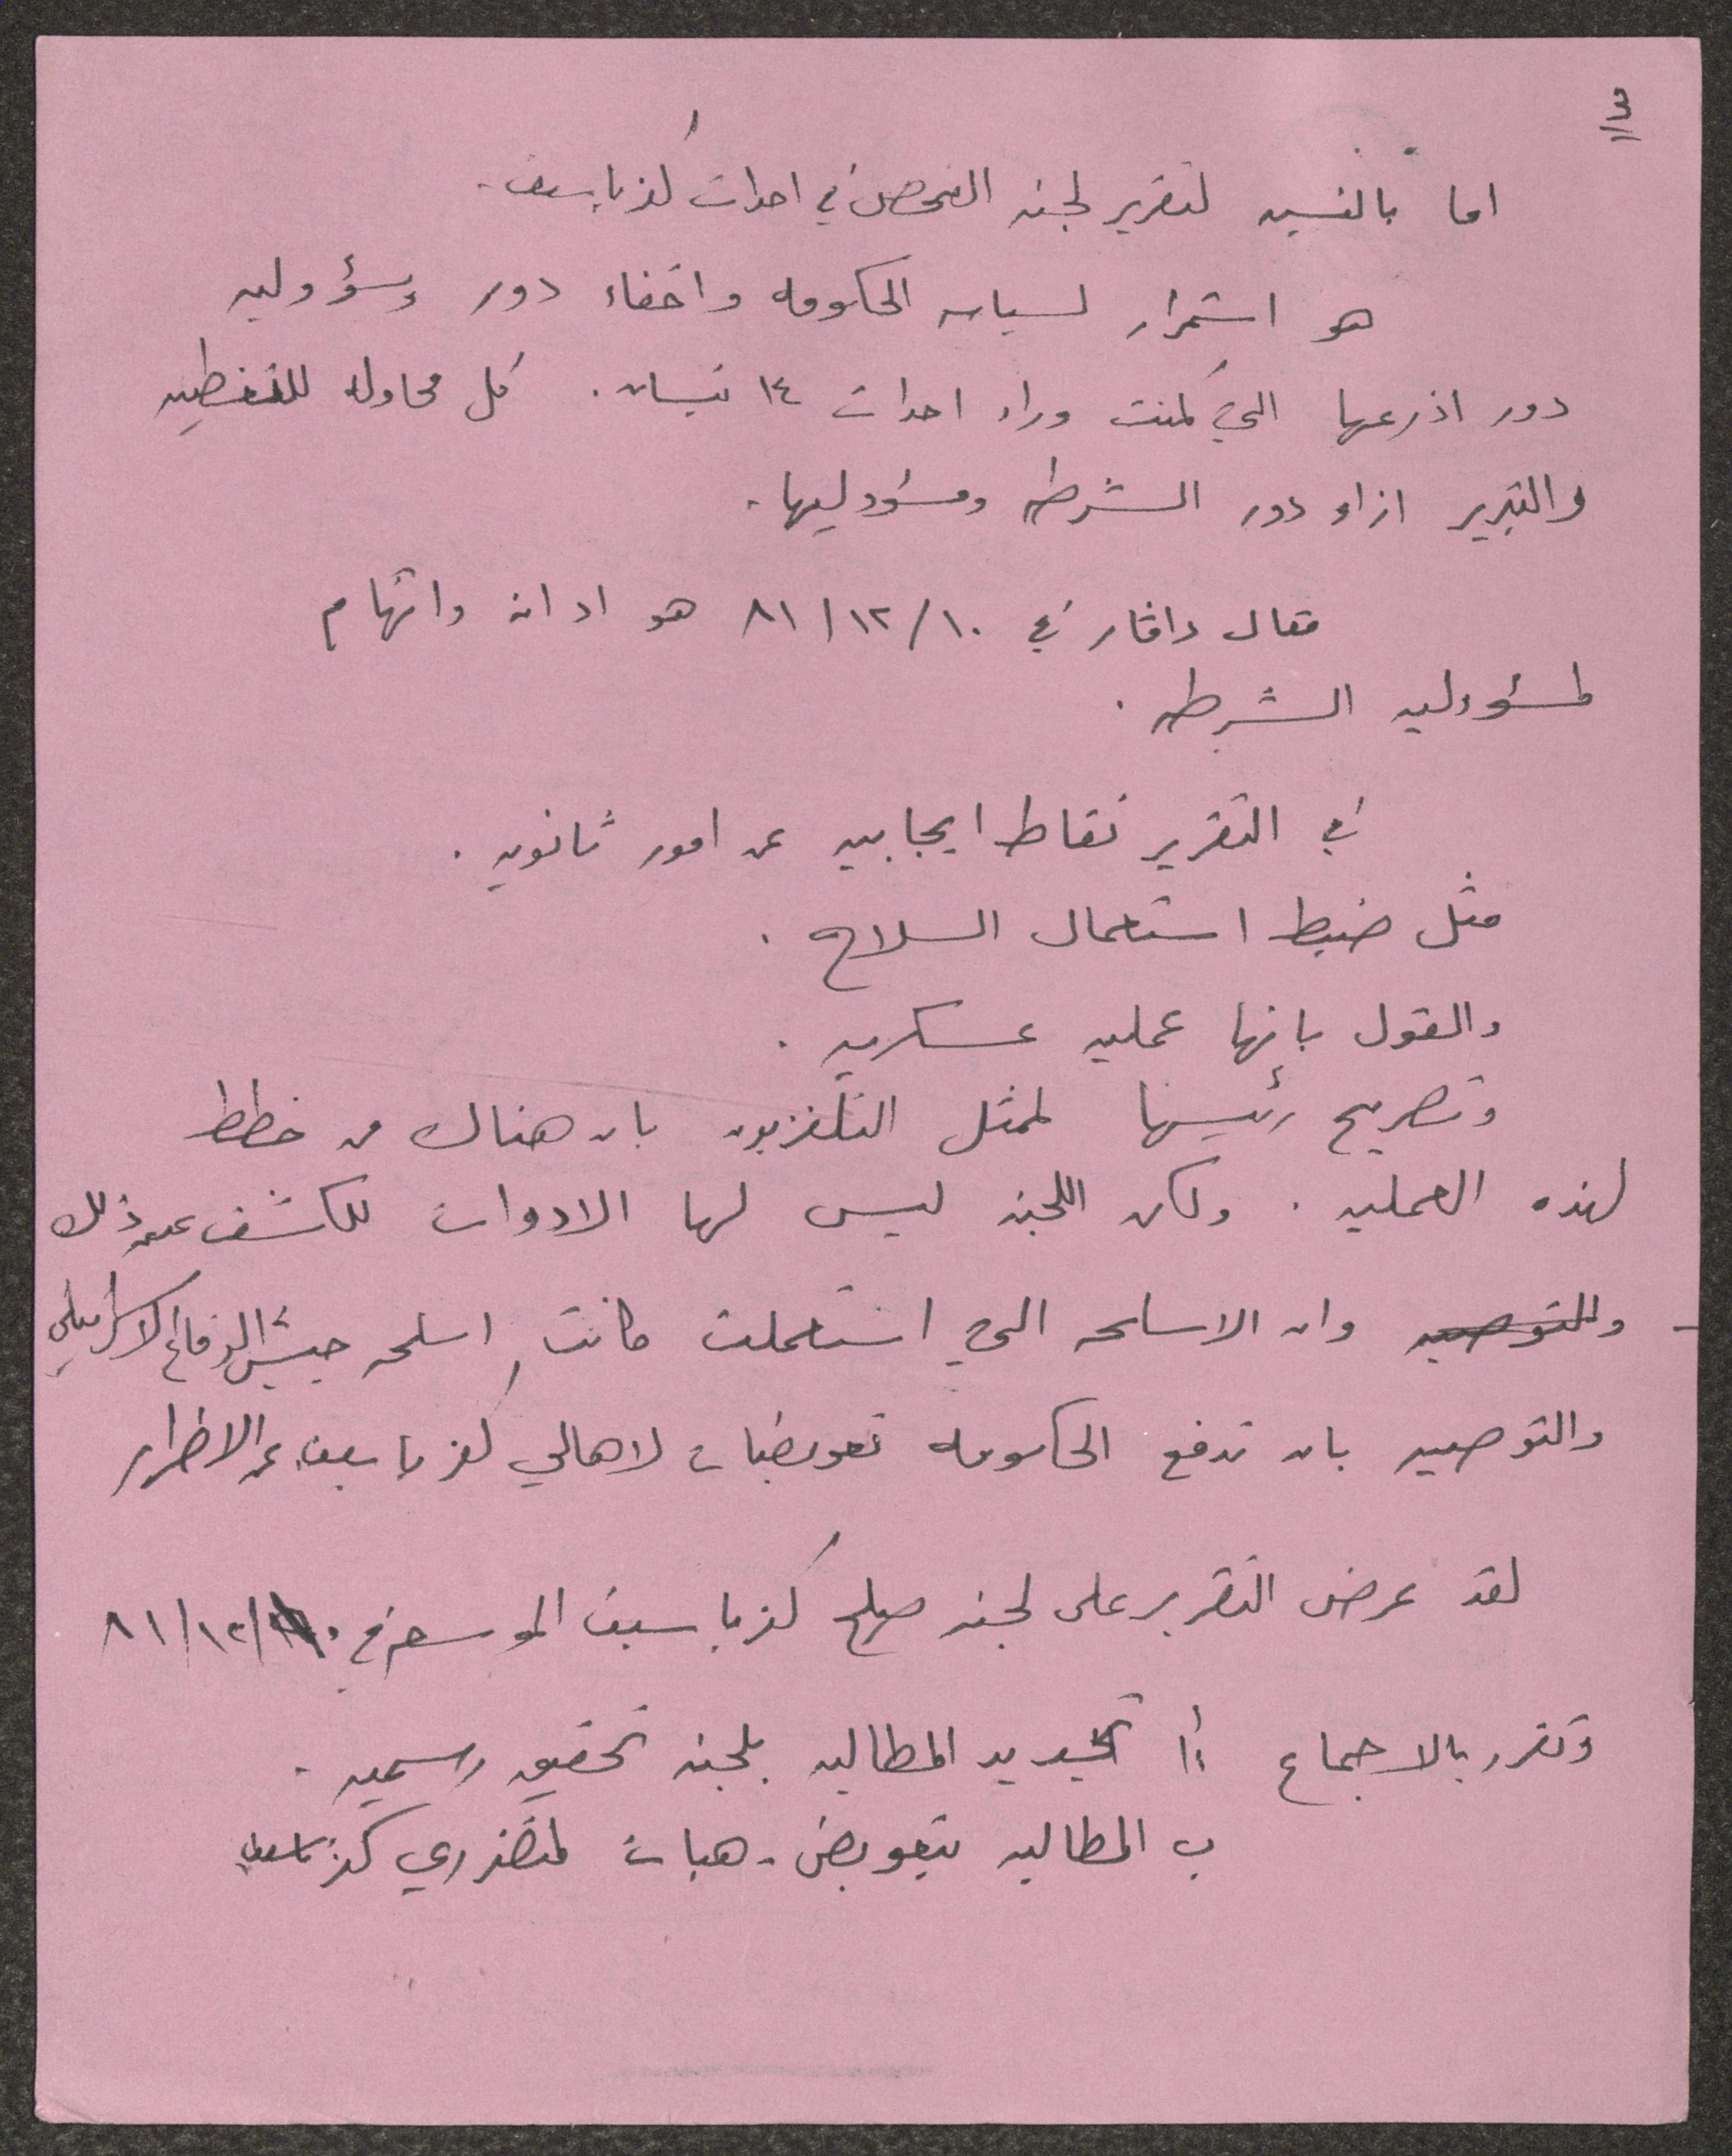 ٣
اما بالنسبه لتقرير لجنه الفحص في احداث كفر ياسيف.
هو استمرار لسياسه الحكومه واخفاء دور ومسؤوليه
دور اذرعها التي كمنت وراء احداث ١٤ نيسان. كل محاوله للتغطيه
والتبرير ازاء دور الشرطه ومسؤوليها.
مقال داڤار في ١٠/١٢/٨١ هو ادانه واتهام
لمسؤوليه الشرطه.
في التقرير نقاط ايجابيه عن امور ثانويه.
مثل ضبط استعمال السلاح.
والقول بانها عمليه عسكريه.
وتصريح رئيسها لممثل التلفزيون بان هناك من خطط
لهذه العمليه. ولكن اللجنه ليس لها الادوات للكاشف عن ذلك
- والتوصيه وان الاسلحه التي استعملت كانت اسلحه جيش الدفاع الاسرائيلي
والتوصيه بان تدفع الحكومه تعويضات لاهالي كفر ياسيف عن الاضرار
لقد عرض التقرير على لجنه صلح كفر ياسيف الموسع في ١٠/١٢/٨١
وتقرر بالاجماع أ تجديد المطالبه بلجنه تحقيق رسميه.
ب المطالبه بتعويض - هبات لمتضرري كفر ياسيف